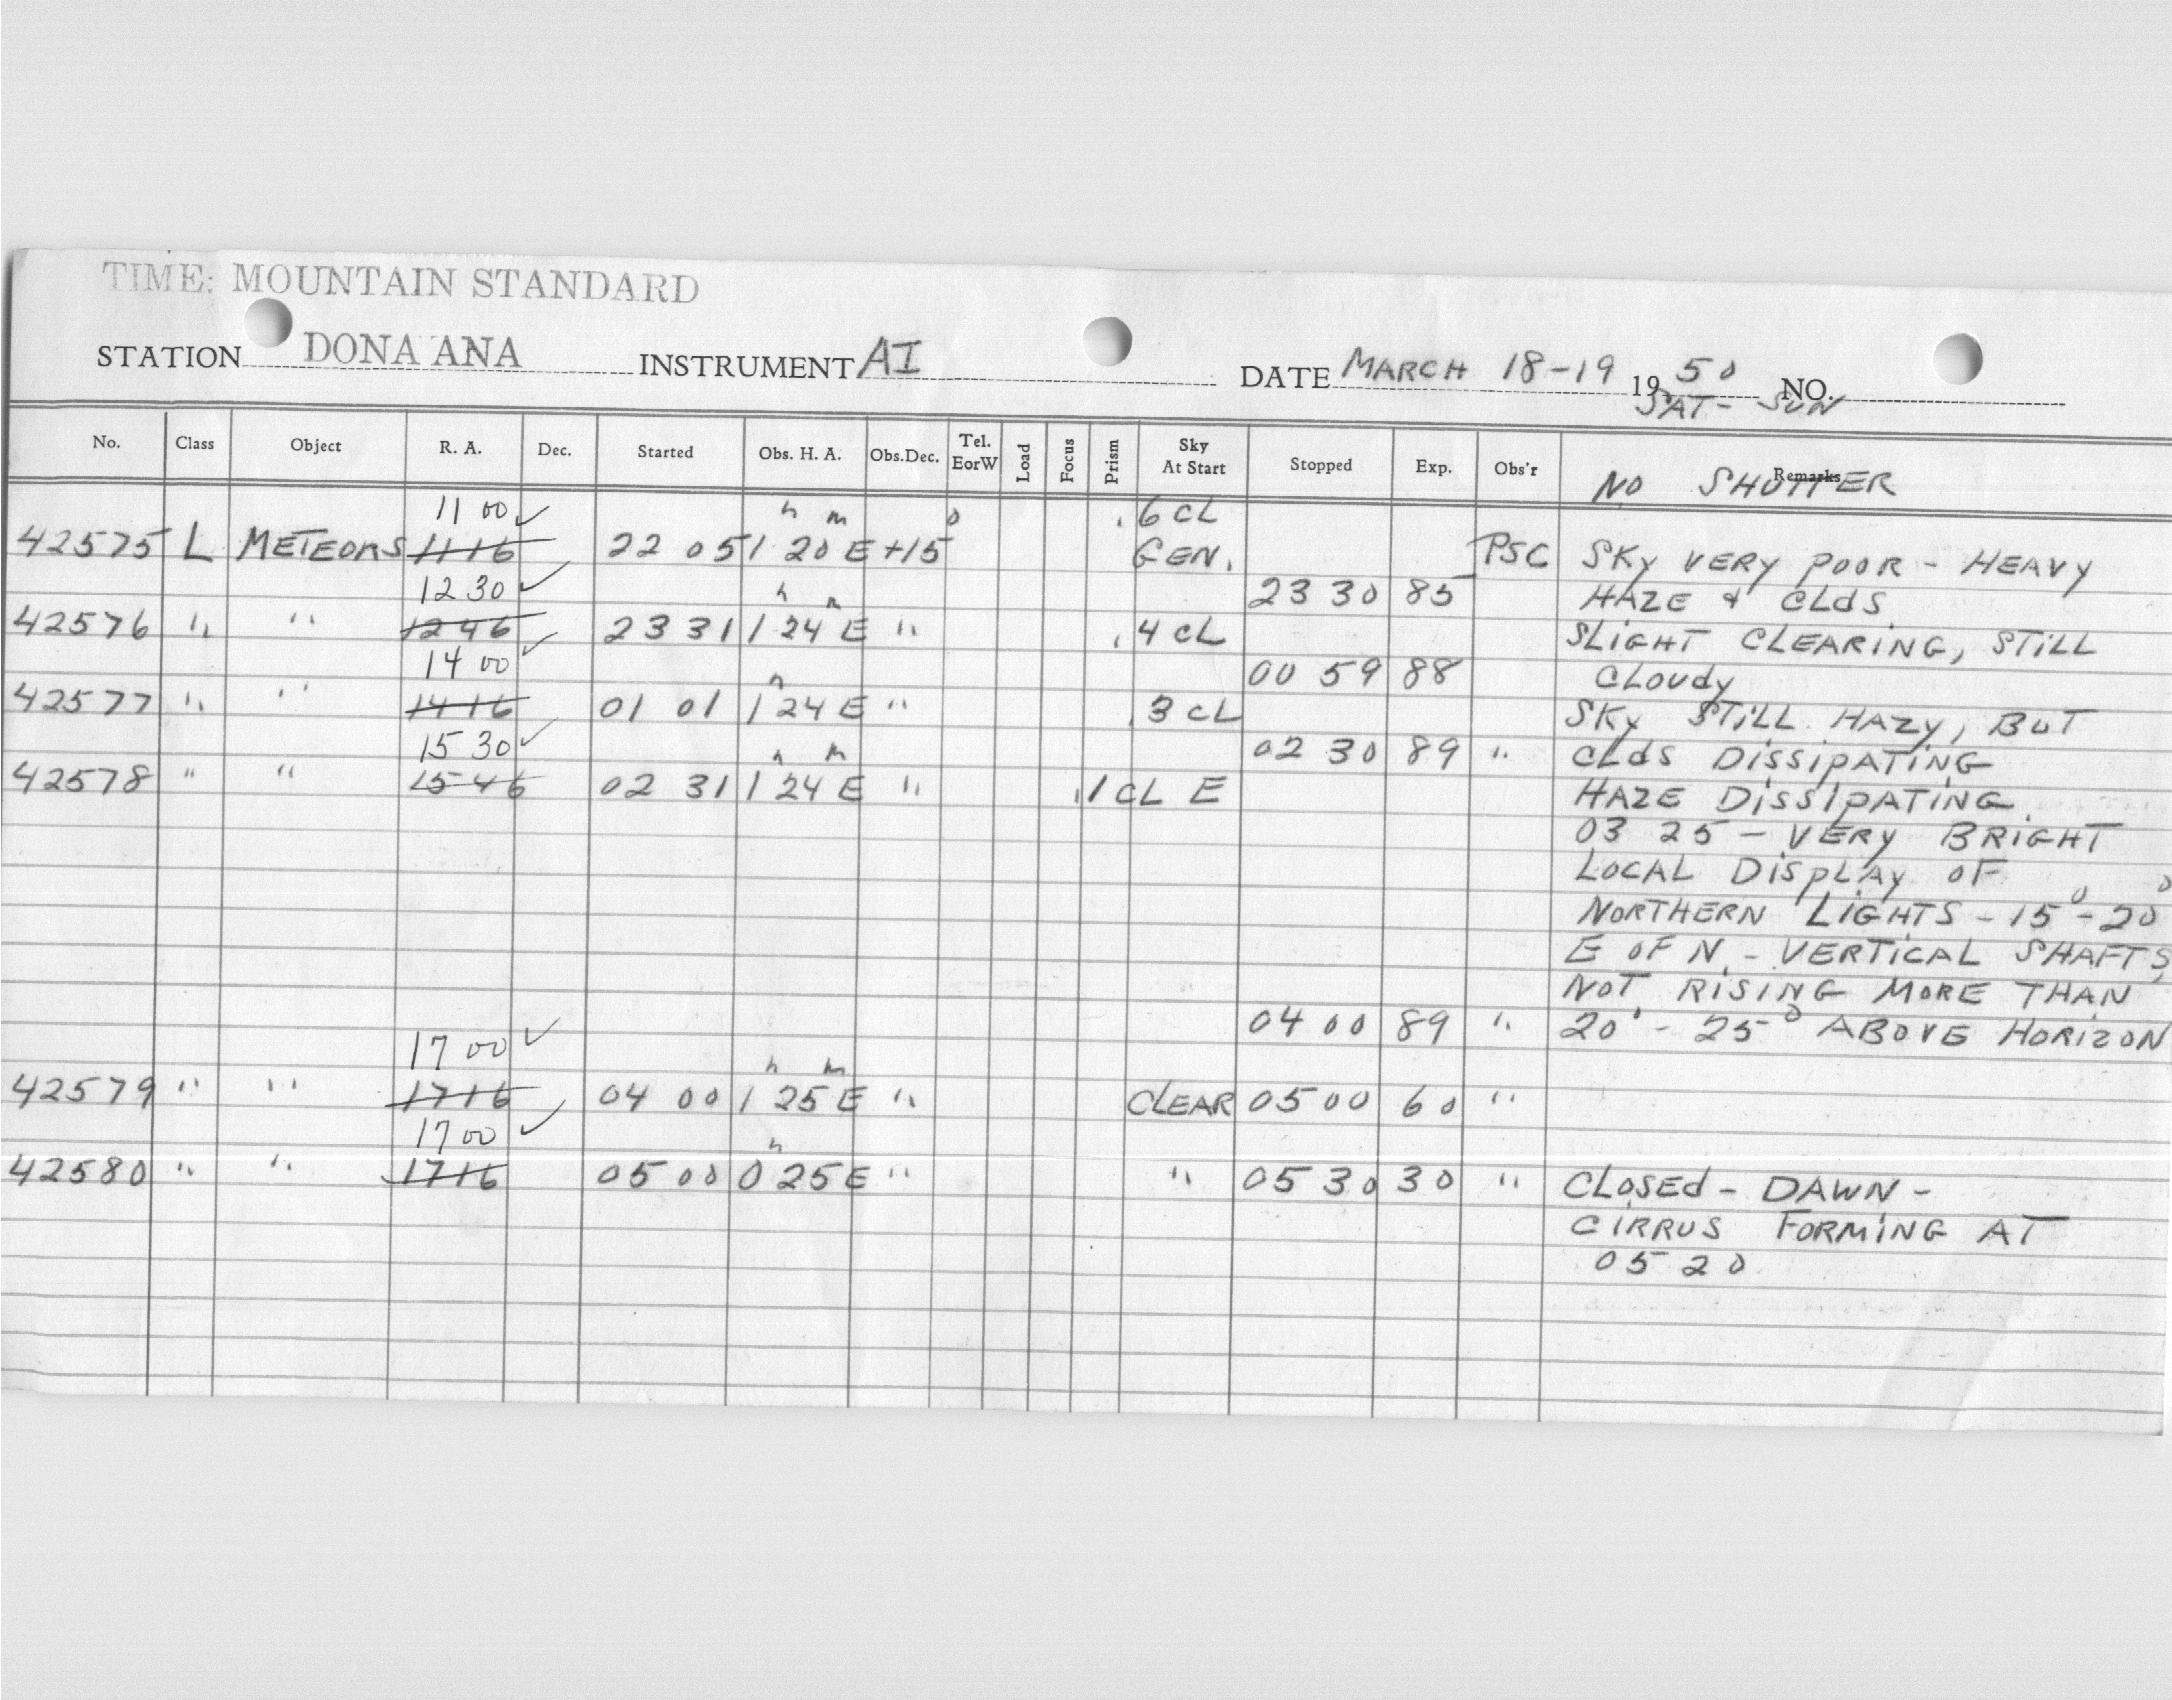 TIME: MOUNTAIN STANDARD
STATION DONA ANA INSTRUMENT AI DATE MARCH 18-19 1950 NO.
SAT - SUN
No. Class Object R. A. Dec. Started Obs. H. A. Obs.Dec. Tel. EorW Load Focus Prism Sky At Start Stopped Exp. Obs'r Remarks
NO SHUTTER
11 00 ✓ h m o .6 CL
42575 L METEORS 1116 22 05 1 20 E +15 GEN. PSC SKY VERY POOR - HEAVY
12 30 ✓ h m 23 30 85 HAZE & CLdS
42576 " " 1246 23 31 1 24 E " .4 CL SLIGHT CLEARING, STILL
14 00 ✓ h 00 59 88 CLOUdy
42577 " " 1416 01 01 1 24 E " .3 CL SKY STILL HAZY, BUT
15 30 ✓ h m 02 30 89 " CLdS DISSIPATING
42578 " " 1546 02 31 1 24 E " .1 CL E HAZE DISSIPATING
03 25 - VERY BRIGHT
LOCAL DISPLAY OF
NORTHERN LIGHTS - 15° - 20°
E OF N. - VERTICAL SHAFTS,
NOT RISING MORE THAN
17 00 ✓ 04 00 89 " 20° - 25° ABOVE HORIZON
h m
42579 " " 1716 04 00 1 25 E " CLEAR 05 00 60 "
17 00 ✓ h
42580 " " 1716 05 00 0 25 E " " 05 30 30 " CLOSEd - DAWN -
CIRRUS FORMING AT
05 20